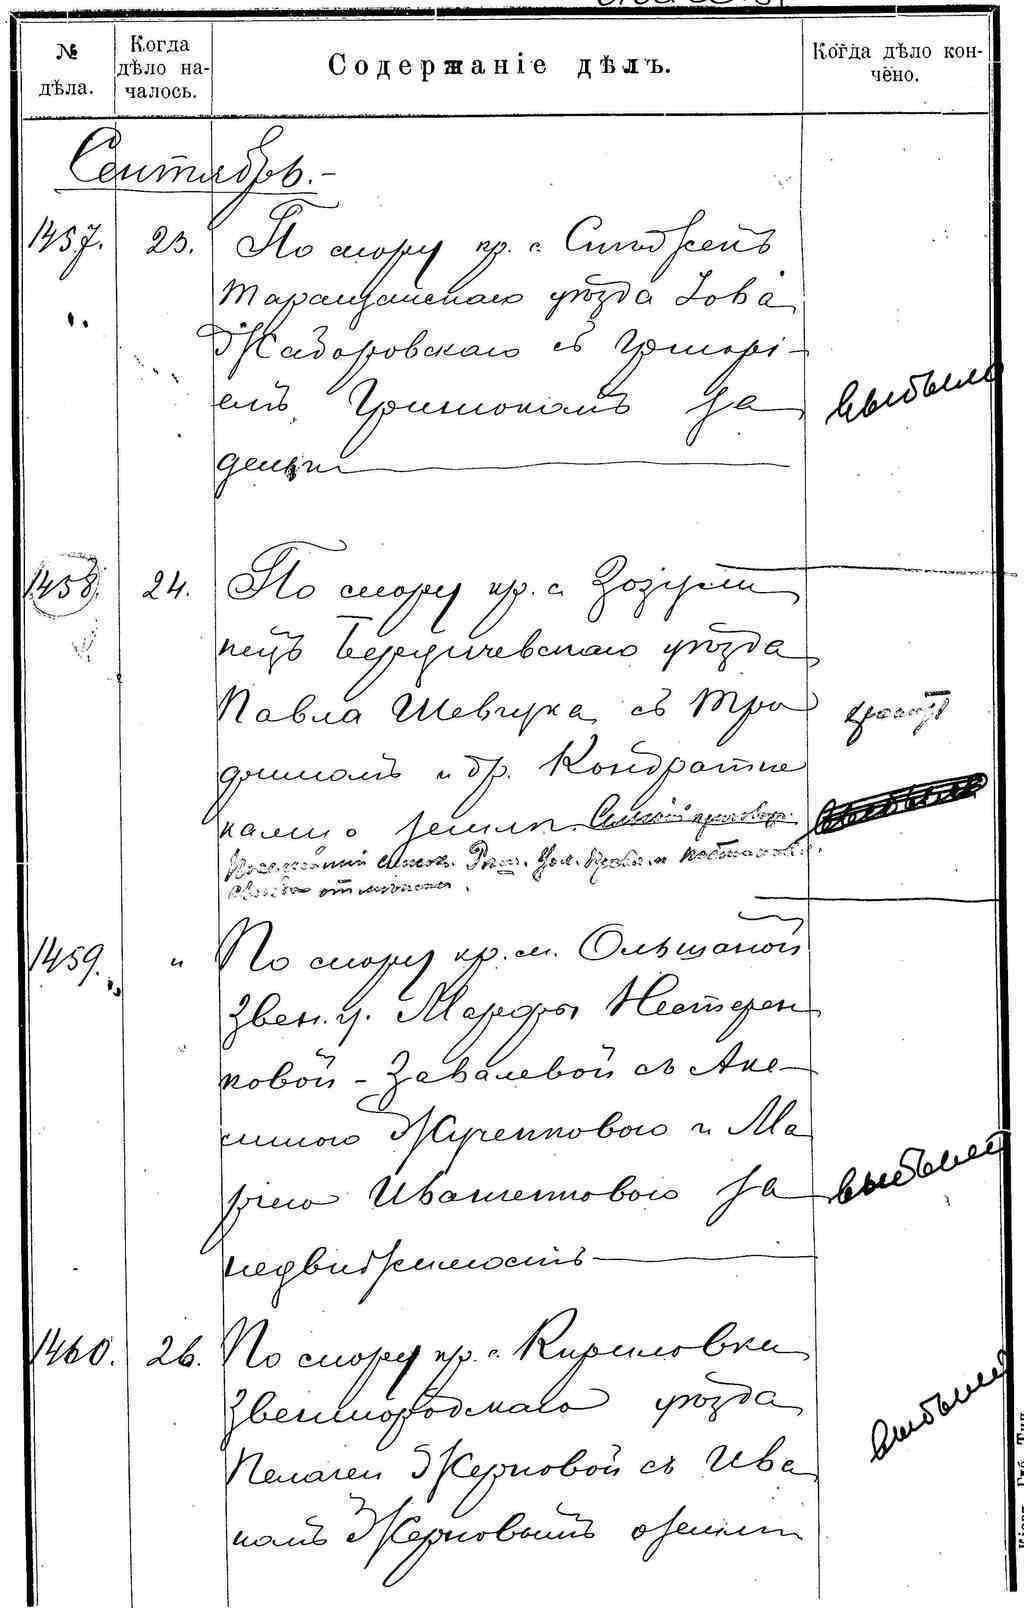 № дѣла.
Когда дѣло на-
чалось.
Содержаніе дѣлъ.
Когда дѣло кон-
чено.
Сентябрь.-
1457. 23. По спору кр. с.
Таращанскаго уѣзда Іова
Жадоровскаго съ Григорі-
емъ Гринюкомъ за
деньги
выбыло
1458. 24. По спору кр. с. Зозули
нецъ Бердичевскаго уѣзда
Павла Шевчука съ Тро
химомъ и др. Кондратю
ками о земли.
1459. " По спору кр. м. Ольшаной
Звен. у. Марфы Нестерен
ковой - Завалевой съ Аке-
ниною Жученковою и Ма
ріею Иващенковою за
недвижимость
выбыло
1460. 26. По спору кр. с. Кириловки
Звенигородскаго уѣзда
Пелагеи Жерновой съ Ива
номъ Жерновымъ о земли
выбыло